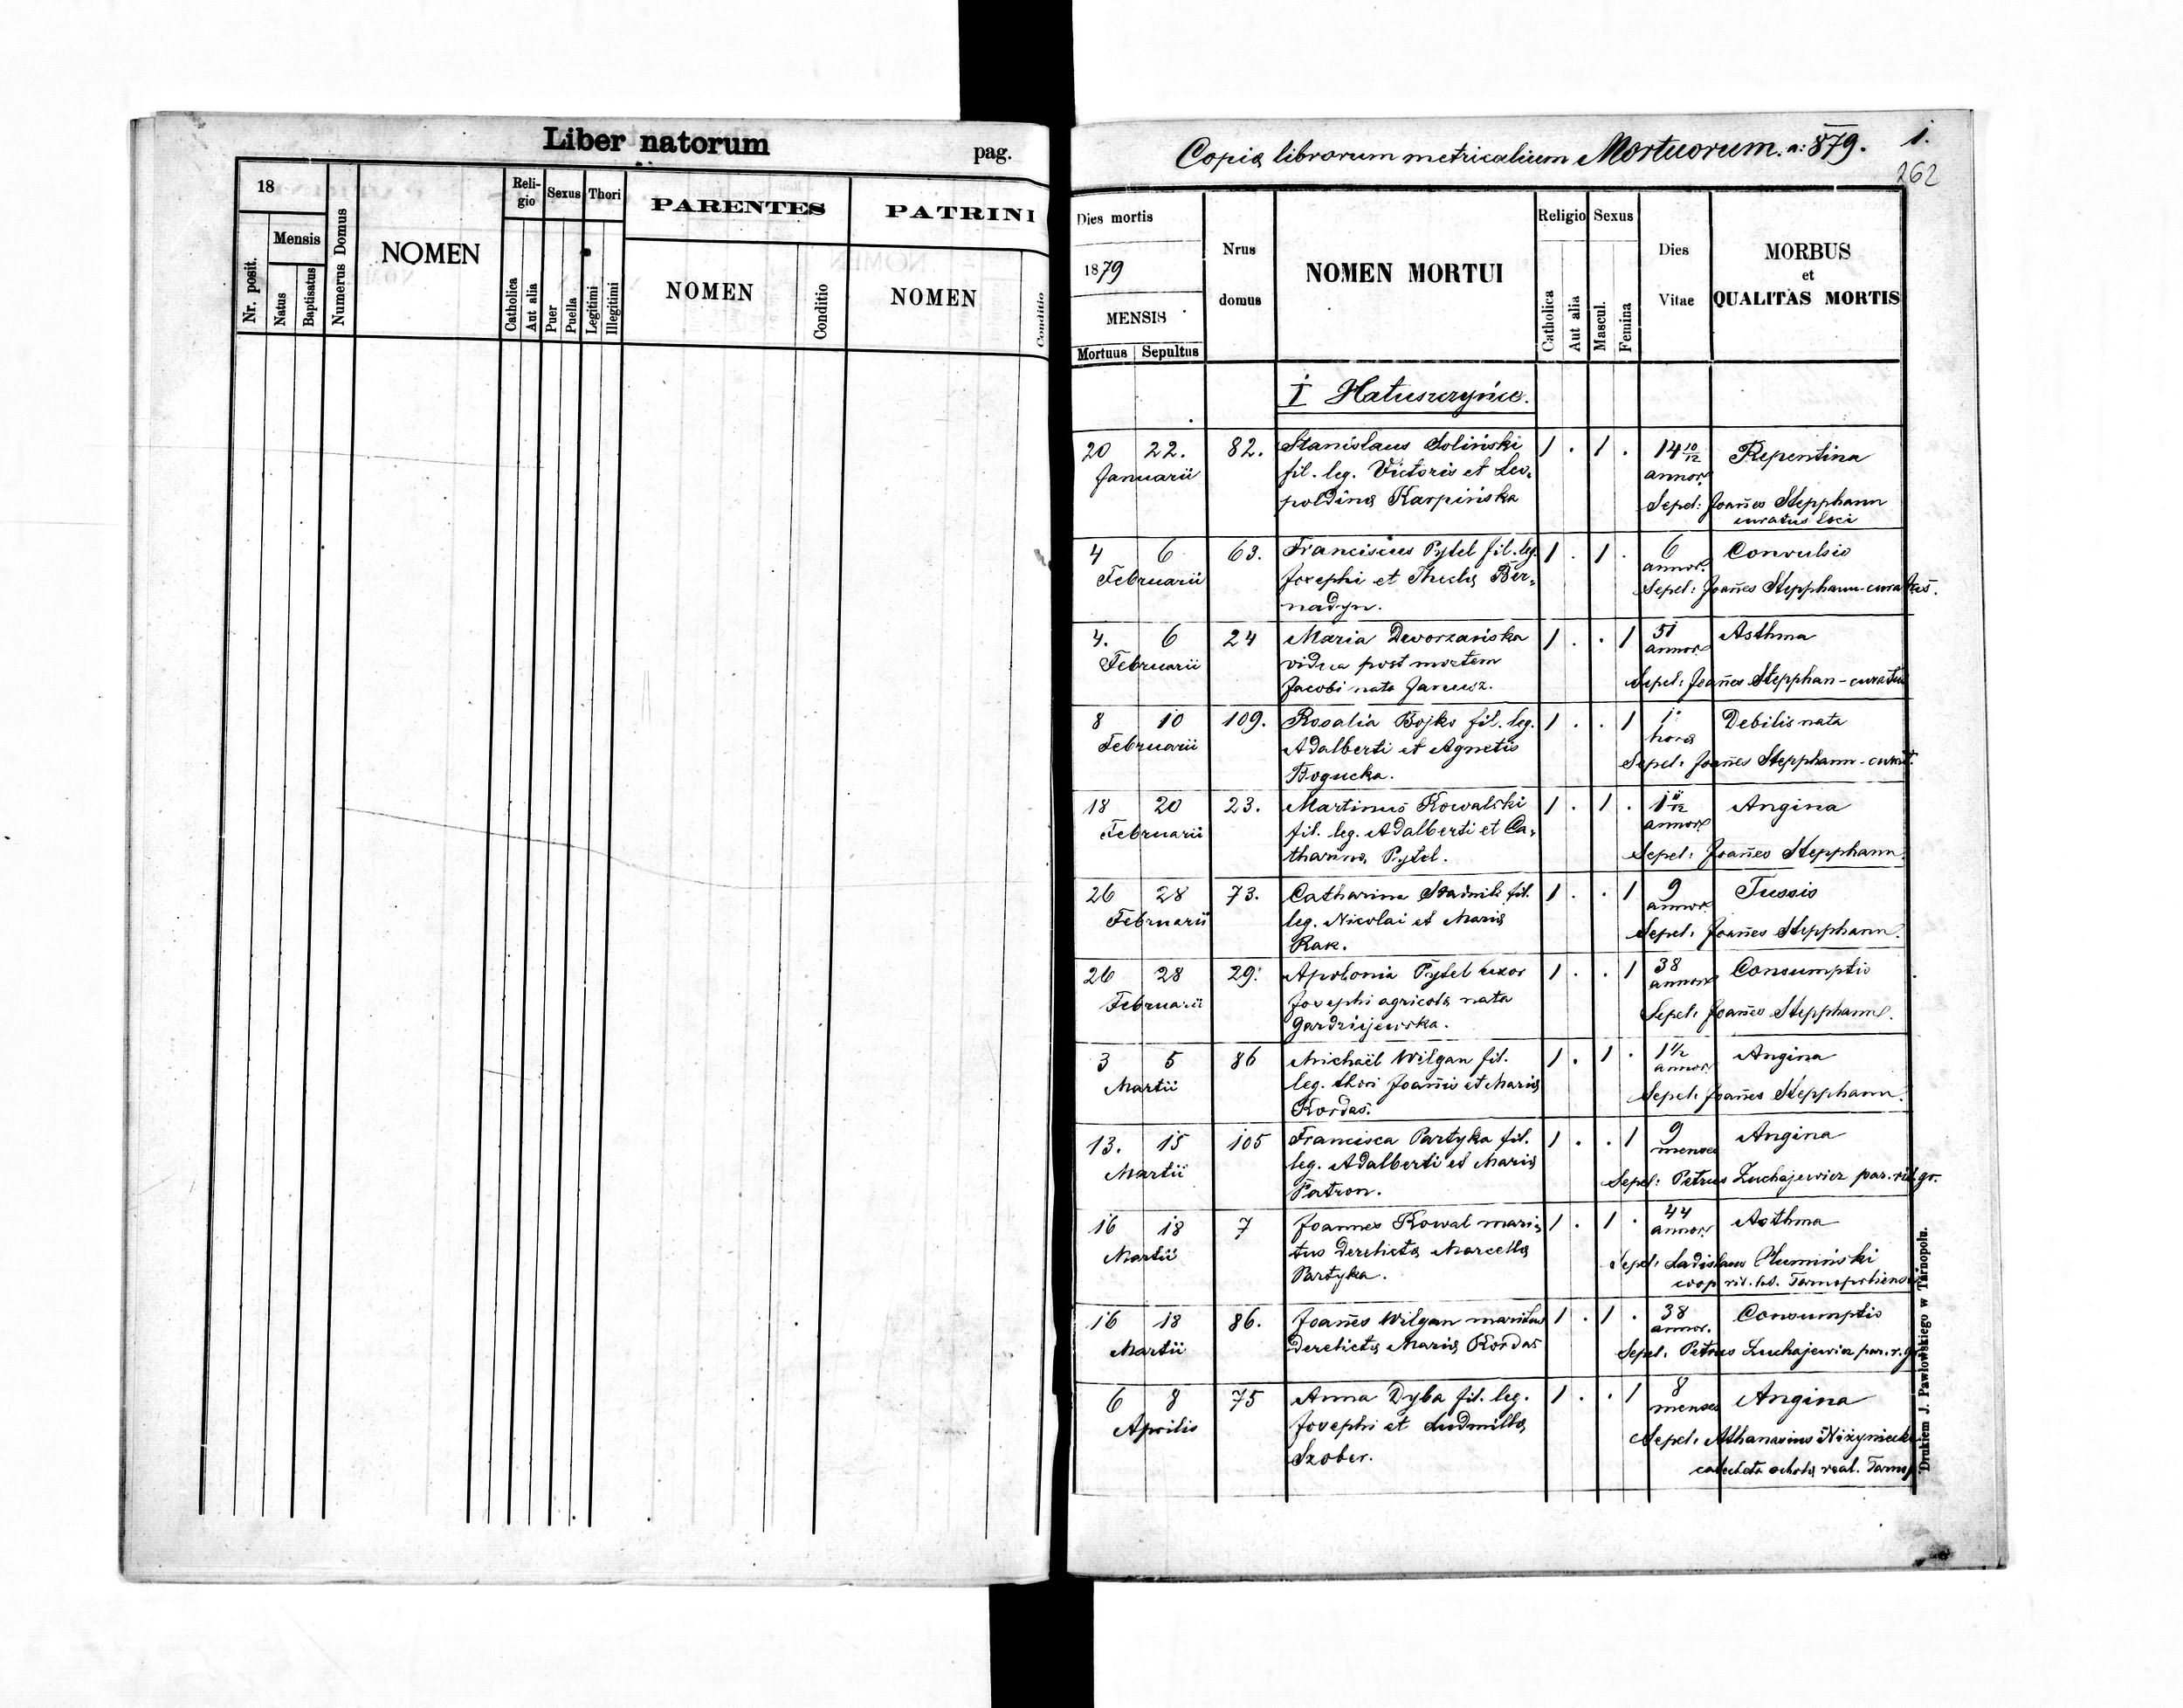 Liber natorum
pag.
18
Mensis
Nr. posit.
Natus
Baptisatus
Numerus Domus
NOMEN
Reli-
gio
Sexus
Thori
Catholica
Aut alia
Puer
Puella
Legitimi
Illegitimi
PARENTES
NOMEN
Conditio
PATRINI
NOMEN
Conditio
Copia librorum metricalium Mortuorum. a: 879. 1.
262
Dies mortis
1879
MENSIS
Mortuus Sepultus
Nrus
domus
NOMEN MORTUI
Religio
Catholica
Aut alia
Sexus
Mascul.
Femina
Dies
Vitae
MORBUS
et
QUALITAS MORTIS
I
20 22. 82. Stanislaus Soliński 1 . 1 . 14 10/12 Repentina
Januarii fil. leg. Victoris et Leo- annor.
poldina Karpińska Sepel: Joañes Stepphann
curatus loci
4 6 63. Franciscus Pytel fil. leg. 1 . 1 . 6 Convulsio
Februarii Josephi et Thecla Ber- annor.
nadyn. Sepel: Joañes Stepphann-curatus.
4. 6 24 Maria Dworzańska 1 . . 1 51 Asthma
Februarii vidua post mortem annor
Jacobi nata Sepel: Joañes Stepphan-curatus
8 10 109. Rosalia Bojko fil. leg. 1 . . 1 1 Debilis nata
Februarii Adalberti et Agnetis hora
Bogucka. Sepel: Joañes Stepphann-curat.
18 20 23. Martinus Kowalski 1 . 1 . 1 11/12 Angina
Februarii fil. leg. Adalberti et Ca- annor
tharina Pytel. Sepel: Joañes Stepphann.
26 28 73. Catharina Stadnik fil. 1 . . 1 9 Tussis
Februarii leg. Nicolai et Maria annor.
Rak. Sepel: Joañes Stepphann.
26 28 29. Apolonia Pytel uxor 1 . . 1 38 Consumptio
Februarii Josephi agricola nata annor
Gardziejewska. Sepel: Joañes Stepphann.
3 5 86 Michaël Wilgan fil. 1 . 1 . 1 1/2 Angina
Martii leg. thori Joañis et Maria annor
Kordas. Sepel: Joañes Stepphann.
13. 15 105 Francisca Partyka fil. 1 . . 1 9 Angina
Martii leg. Adalberti et Maria menses
Patron. Sepel: Petrus Zuchajewicz par. rit. gr.
16 18 7 Joannes Kowal mari- 1 . 1 . 44 Asthma
Martii tus derelicta Marcella annor
Partyka. Sepel: Ladislaus Chumiński
coop rit. lat. Tarnopoliensis
16 18 86. Joañes Wilgan maritus 1 . 1 . 38 Consumptio
Martii derelicta Maria Kordas annor.
Sepel: Petrus Zuchajewicz par. r. gr.
6 8 75 Anna Dyba fil. leg. 1 . . 1 8 Angina
Aprilis Josephi et Ludmilla menses
Szober. Sepel: Athanasius
catecheta schola real. Tarnop
Drukiem J. Pawłowskiego w Tarnopolu.